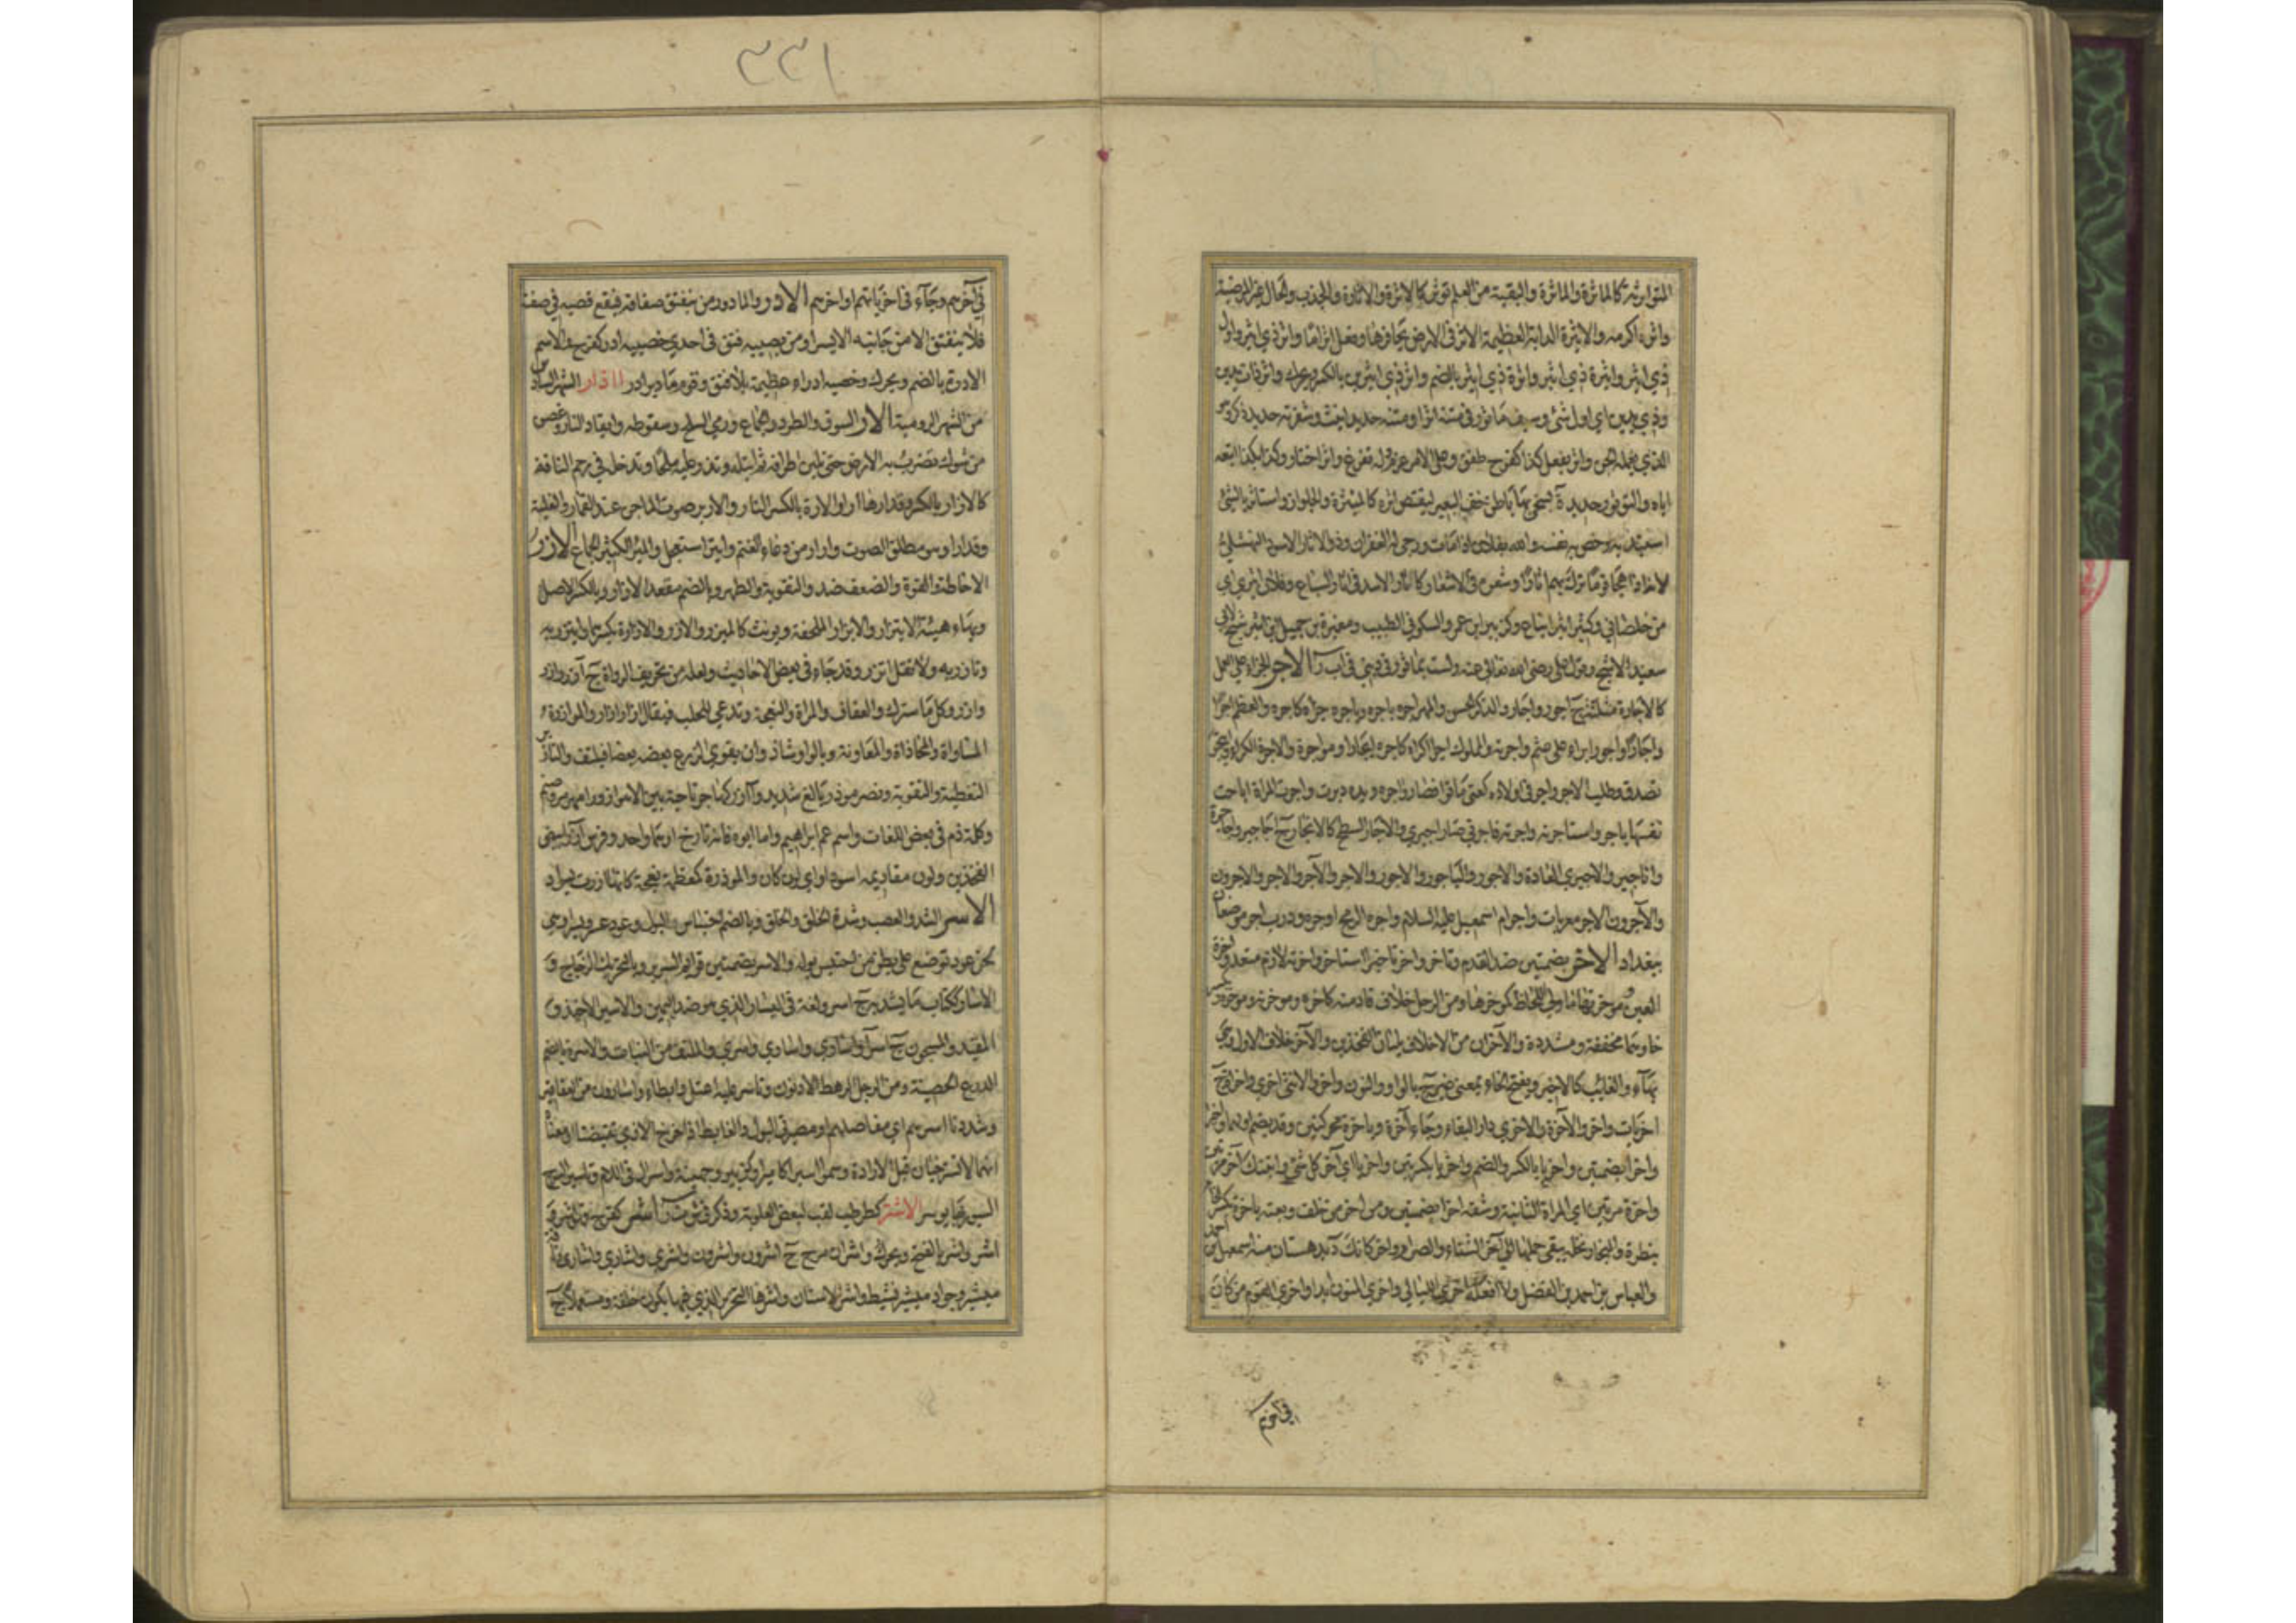 المتوارثة كالماثرة والماثرة والبقية من العلم تؤثر كالاثرة والاثارة والجدب والحال غير المرضية
واثره اكرمه والاثيرة الدابة العظيمة الاثر في الارض بحافرها وفعل اثرا ما واثر ذي اثير واول
ذي اثير واثيرة ذي اثير واثرة ذي اثير بالضم واثر ذي اثيرين بالكسر ويحرك واثر ذات يدين
وذي يدين اي اول شئ وسيف ماثور في متنه اثر او متنه حديد انيث وشفرته حديد ذكر او هو
الذي يعمله الجن واثر يفعل كذا كفرح طفق وعلى الامر عزم وله تفرغ واثر اختار وكذا بكذا اتبعه
اياه والتوثور حديدة يسحى بها باطن خف البعير ليقتص اثره كالميثرة والجلواز واستاثر بالشئ
استبد به وخص به نفسه والله بفلان اذا مات ورجي له الغفران وذو الاثار الاسود النهشلي
لانه اذا هجا قوما ترك بهم اثارا وشعره في الاشعار كاثار الاسد في اثار السباع وفلان اثيري اي
من خلصاني وكثير اثير اتباع وكزبير ابن عمرو السكوني الطبيب ومغيرة بن جميل بن اثير شيخ لابي
سعيد الاشج وقول علي رضي الله تعالى عنه ولست بماثور في ديني في اب ر الاجر الجزاء على العمل
كالاجارة مثلثة ج اجور واجار والذكر الحسن والمهر اجره ياجره وياجره جزاه كاجره والعظم اجرا
واجارا واجورا براء على عثم واجرته والمملوك اجرا اكراه كاجره ايجارا ومواجرة والاجرة الكراء وايتجر
تصدق وطلب الاجر واجر في اولاده كعني ماتوا فصاروا اجره ويده جبرت واجرت المراة اباحت
نفسها باجر واستاجرته واجرته فاجرني صار اجيري والاجار السطح كالانجار ج اجاجير واجاجرة
واناجير والاجيرى العادة والاجور والياجور والاجور والاجر والآجر والاجر والاجرون
والآجرون الاجر معربات واجر ام اسمعيل عليه السلام واجره الرمح اوجره ودرب اجر موضعان
ببغداد الاخر بضمتين ضد القدم وتاخر واخر تاخيرا استاخر واخرته لازم متعد واخرة
العين وموخرتها ما ولي اللحاظ كموخرها ومن الرحل خلاف قادمته كاخره وموخره وموخرته
مخففة ومشددة والآخران من الاخلاف يليان الفخذين والآخر خلاف الاول وهي
بهاء والغائب كالاخير وبفتح الخاء بمعنى غير ج بالواو والنون واخر والانثى اخرى واخراة ج
اخريات واخر والآخرة والاخرى دار البقاء وجاء آخرة وباخرة محركتين وقد يضم اولهما واخيرا
واخرا بضمتين واخريا بالكسر والضم واخريا بكسرتين واخريا اي آخر كل شئ واتيتك آخر مرتين
واخرة مرتين اي المرة الثانية وشقه اخرا بضمتين ومن اخر من خلف وبعته باخرة بكسر الخاء
بنظرة والميخار نخلة يبقى حملها الى آخر الشتاء والصرام واخر كانك د بدهستان منه اسمعيل بن احمد
والعباس بن احمد بن الفضل ولا افعله اخرى الليالي واخرى المنون ابدا واخرى القوم من كان
في آخرم
٣٣١
في آخرهم وجاء في اخرياتهم اواخرهم الادر والمادور من ينفتق صفاقه فيقع قصبه في صفنه
فلا ينفتق الا من جانبه الايسر او من يصيبه فتق في احدى خصييه ادر كفرح والاسم
الادرة بالضم ويحرك وخصية ادراء عظيمة بلا فتق وقوم مادير ادر ااذار الشهر السادس
من الشهر الرومية الار السوق والطرد والجماع ورمي السلح وسقوطه وايقاد النار وغصن
من شوك تضرب به الارض حتى تلين اطرافه ثم تبله وتذر عليه ملحا وتدخله في رحم الناقة
كالارار بالكسر وقد ارها ارا والارة بالكسر النار والارير صوت الماجن عند القمار والغلبة
وقد ار او هو مطلق الصوت وار ار من دعاء الغنم وايتر استعجل والمئر الكثير الجماع الازر
الاحاطة والقوة والضعف ضد والتقوية والظهر وبالضم معقد الازار وبالكسر الاصل
وبهاء هيئة الايتزار والازار الملحفة ويونث كالميزر والازر والازارة بكسرها وايتزر به
وتازر به ولا تقل اتزر وقد جاء في بعض الاحاديث ولعله من تحريف الرواة ج آزرة وازر
وازر وكل ما سترك والعفاف والمراة والنعجة وتدعى للحلب فيقال ازار ازار والموازرة
المساواة والمحاذاة والمعاونة وبالواو شاذ وان يقوي الزرع بعضه بعضا فيلتف والتازير
التغطية والتقوية ونصر موزر بالغ شديد وآزر كهاجر ناحية بين الاهواز ورامهرمز وصنم
وكلمة ذم في بعض اللغات واسم عم ابراهيم واما ابوه فانه تارخ او هما واحد وفرس آزر ابيض
الفخذين ولون مقاديمه اسود او اي لون كان والموزرة كمعظمة نعجة كانها ازرت بسواد
الاسر الشد والعصب وشدة الخلق والخلق وبالضم احتباس البول وعود اسر ويسر او هي
لحن عود توضع على بطن من احتبس بوله والاسر بضمتين قوائم السرير وبالتحريك الزجاج و
الاسار ككتاب ما يشد به ج اسر ولغة في اليسار الذي هو ضد اليمين والاسير الاخيذ و
المقيد والمسجون ج اسراء واسارى واسارى واسرى والملتف من النبات والاسرة بالضم
الدرع الحصينة ومن الرجل الرهط الادنون وتاسر عليه اعتل وابطاء واسارون من العقاقير
وشددنا اسرهم اي مفاصلهم او مصرتي البول والغايط اذا خرج الاذى تقبضتا او معناه
انهما لا تسترخيان قبل الارادة وسموا اسيرا كامير وكزبير وجهينة واسرال في اللام وتاسير السرج
السيور بها يوسر الاشتر كطرطب لقب لبعض العلوية وذكر في ش ت ر اشر كفرح فهو اشر و
اشر واشر بالفتح ويحرك واشران مرح ج اشرون واشرون واشرى واشارى واشارى وناقة
ميشير وجواد ميشير نشيط واشر الاسنان واشرها التحزيز الذي فيها يكون خلقة ومستعملا ج